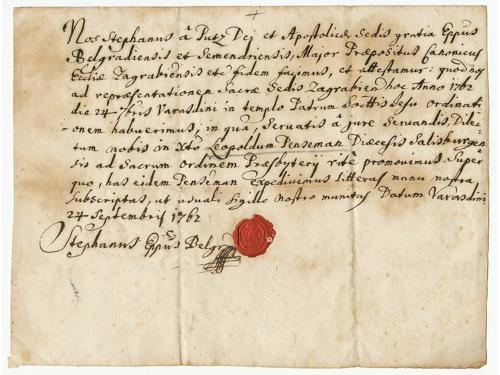 Nos Stephanus à Putz Dej et Apostolicæ Sedis gratia Eppus
Belgradiensis et Semendriensis, Major Præpositus Canonicus
Ecclæ Zagrabiensis etc fidem facimus, et attestamur: quod nos
ad repræsentationem Sacræ Sedis Zagrabien hoc Anno 1762
die 24 7bris Varasdini in templo Patrum Soctis Jesu ordinati
-onem habuerimus, in qua, servatis à jure servandis, Dilec
tum nobis in Xto Leopoldum Penseman Diæcesis Salisburgen
sis ad Sacrum ordinem Præsbyterij ritè promovimus. Super
quo, has eidem Penseman expedivimus litteras manu nostra
subscriptas, ut usuali sigillo nostro munitas Datum Varasdini
24 Septembris 1762
Stephanus Eppus Belgr